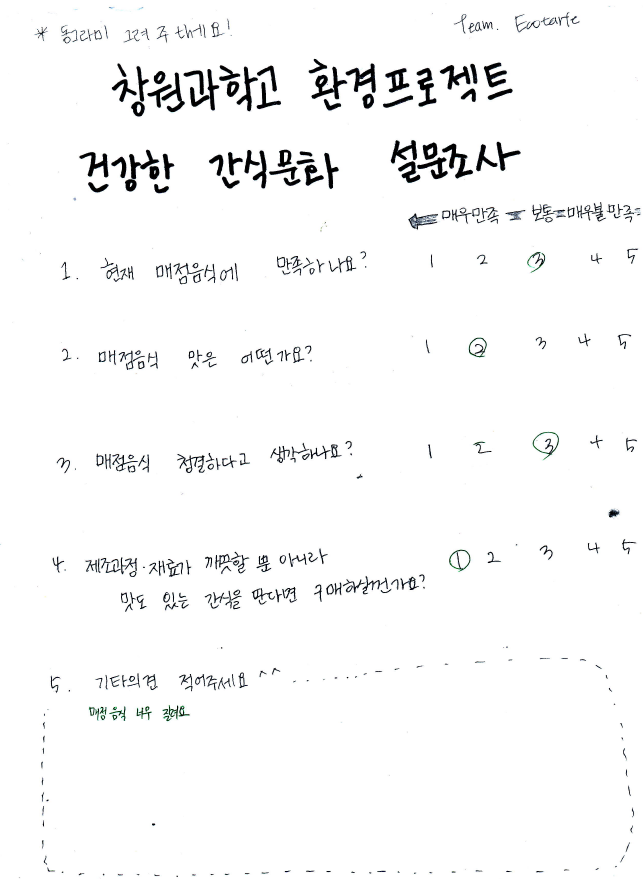 * 동그라미 그려 주세요!
Team. Ecotarte
창원과학고 환경프로젝트
건강한 간식문화 설문조사
매우만족 보통 매우불만족
1. 현재 매점음식에 만족하나요? 1 2 3 4 5
2. 매점음식 맛은 어떤가요? 1 2 3 4 5
3. 매점음식 청결하다고 생각하나요? 1 2 3 4 5
4. 제조과정·재료가 깨끗할 뿐 아니라 1 2 3 4 5
맛도 있는 간식을 판다면 구매하실건가요?
5. 기타의견 적어주세요 ^^
매점음식 너무 질려요